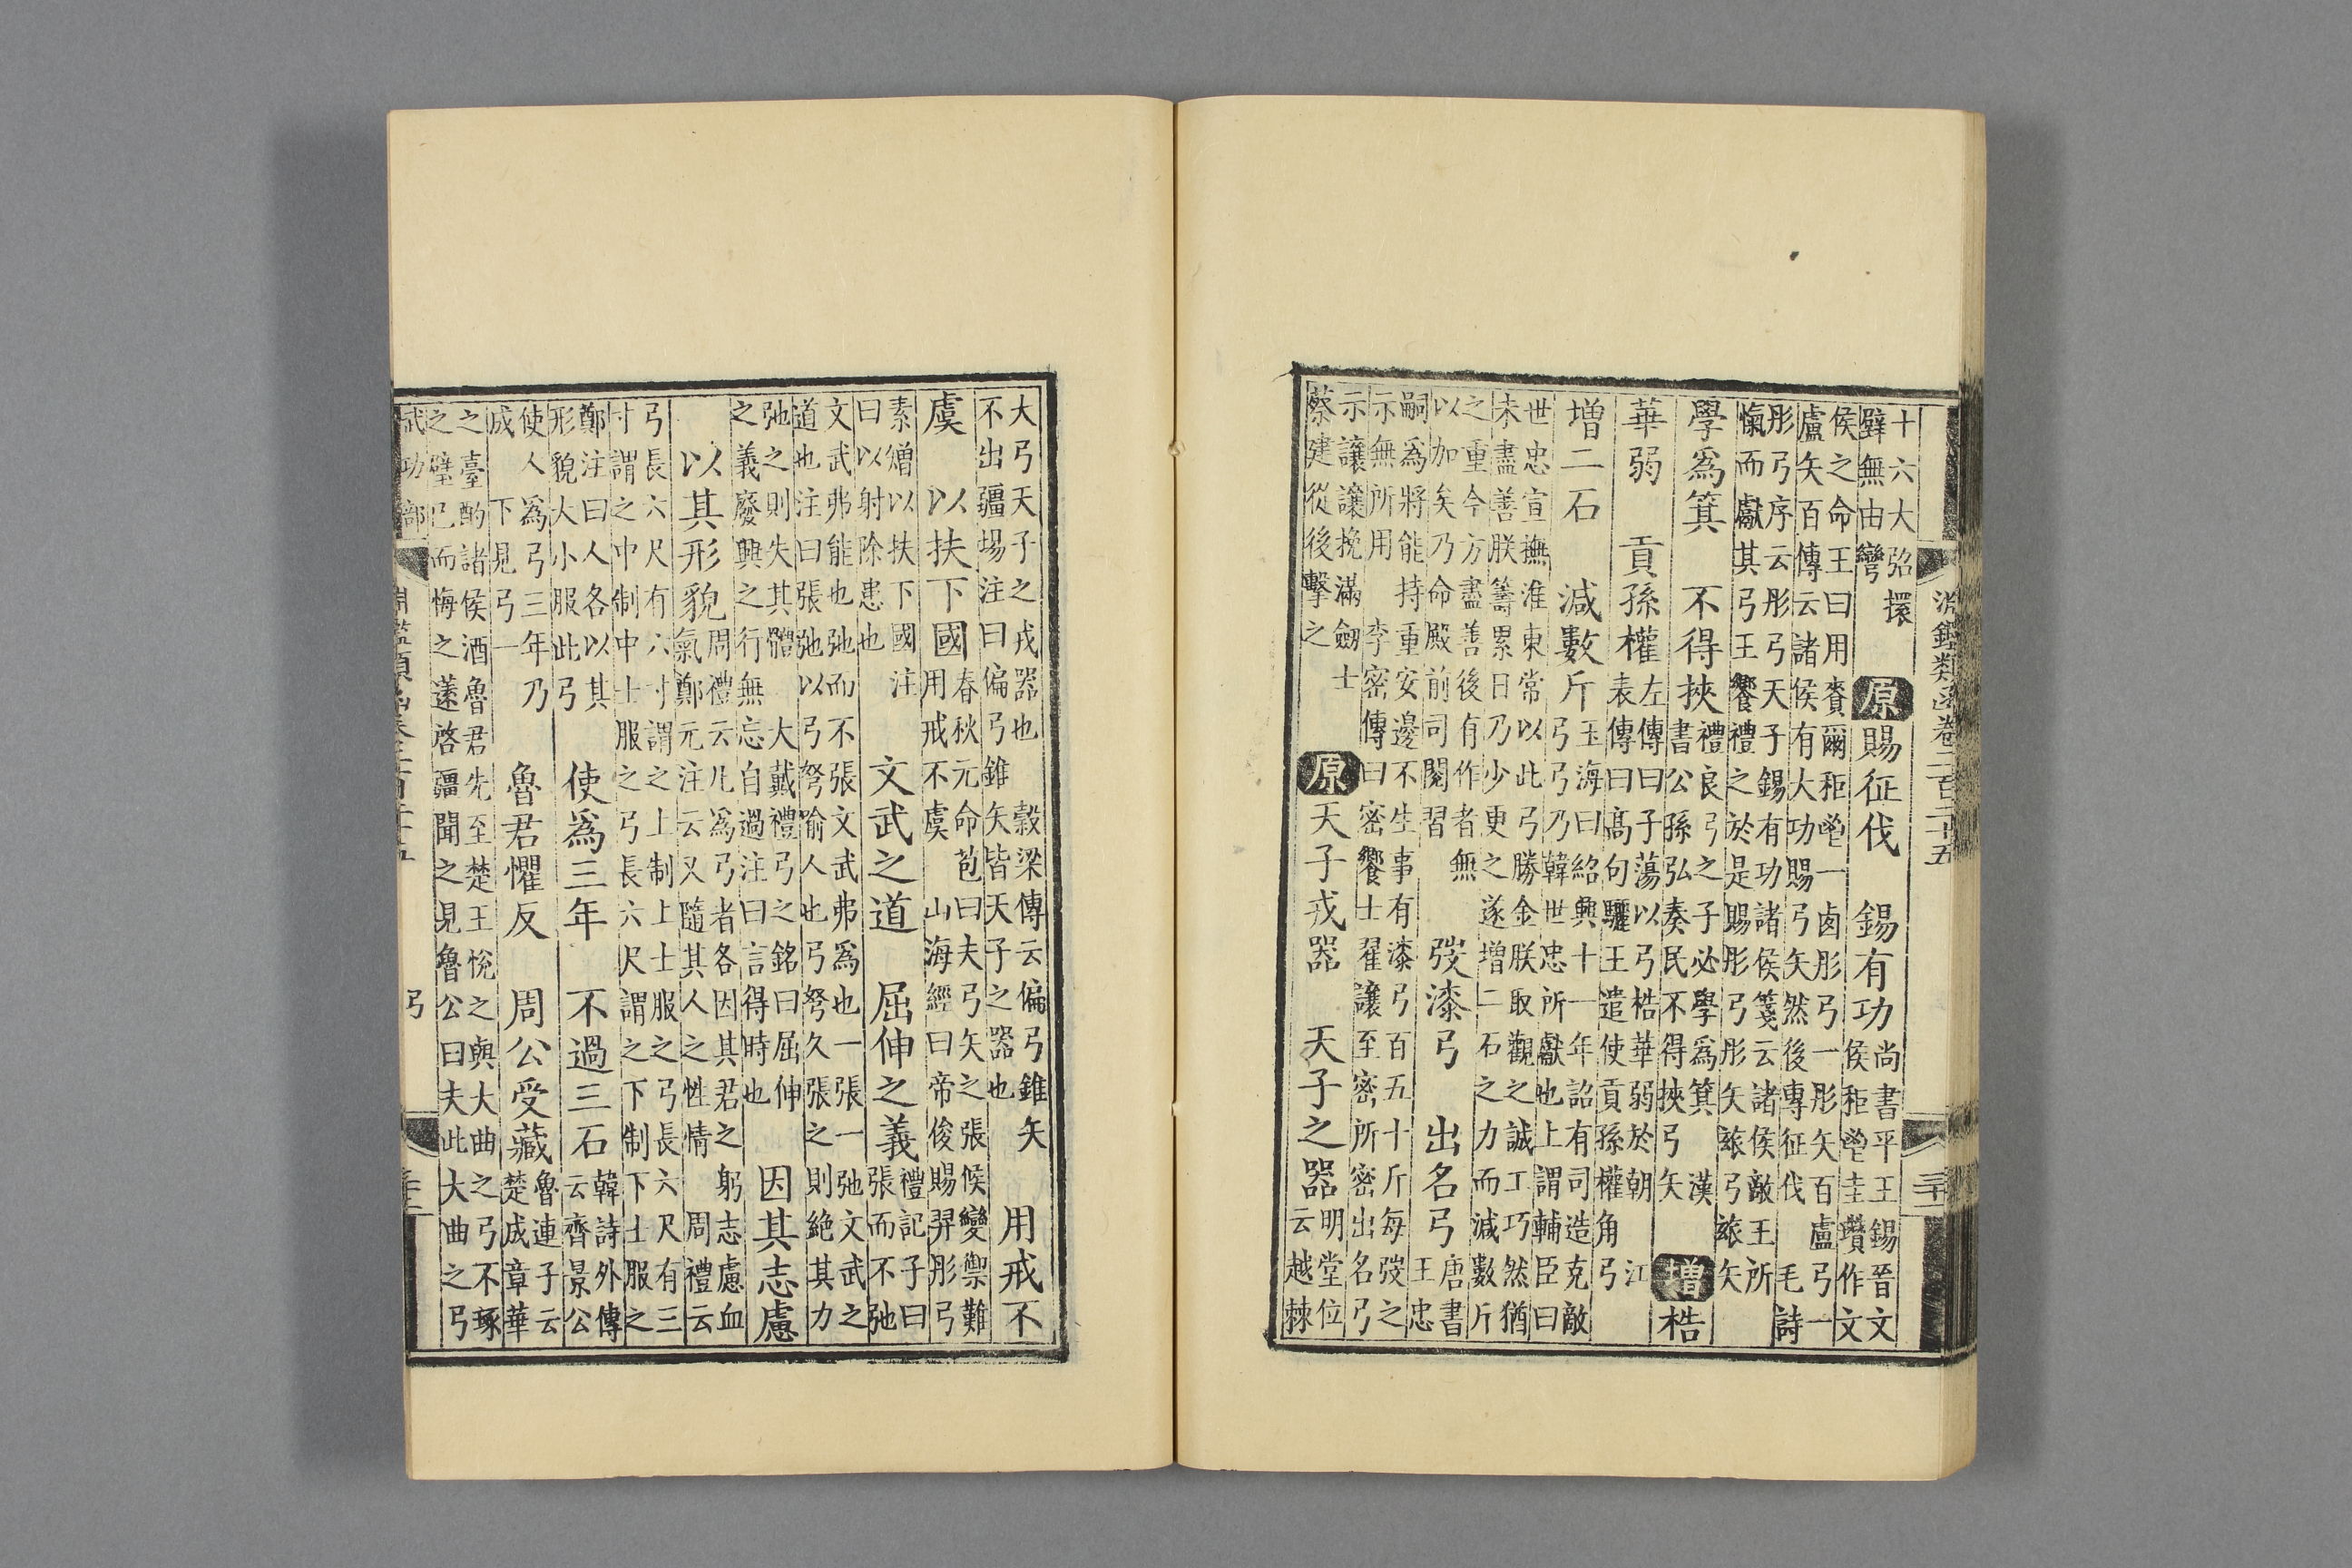 淵鑑類函卷二百二十五
十六大弨擐
壁無由彎
原賜征伐 錫有功
尚書平王錫晉文
侯秬鬯圭瓚作文
侯之命王曰用賚爾秬鬯一卣彤弓一彤矢百盧弓一
盧矢百傳云諸侯有大功賜弓矢然後專征伐 毛詩
彤弓序云彤弓天子錫有功諸侯箋云諸侯敵王所
愾而獻其弓王饗禮之於是賜彤弓彤矢玈弓玈矢
學爲箕 不得挾
禮良弓之子必學爲箕 漢
書公孫弘奏民不得挾弓矢
增楛
華弱 貢孫權
左傳曰子蕩以弓梏華弱於朝 江
表傳曰高句驪王遣使貢孫權角弓
增二石 減數斤
玉海曰紹興十一年詔有司造克敵
弓弓乃韓世忠所獻也上謂輔臣曰
世忠宣撫淮東常以此弓勝金朕取觀之誠工巧然猶
未盡善朕籌累日乃少更之遂增二石之力而減數斤
之重今方盡善後有作者無
以加矣乃命殿前司閱習
弢漆弓 出名弓
唐書
王忠
嗣爲將能持重安邊不生事有漆弓百五十斤每弢之
示無所用 李密傳曰密饗士翟讓至密所密出名弓
示讓讓挽滿劔士
蔡建從後擊之
原天子戎器 天子之器
明堂位
云越棘
大弓天子之戎器也 穀梁傳云偏弓錐矢
不出疆場注曰偏弓錐矢皆天子之器也
用戒不
虞 以扶下國
春秋元命苞曰夫弓矢之張候變禦難
用戒不虞 山海經曰帝俊賜羿彤弓
素矰以扶下國注
曰以射除患也
文武之道 屈伸之義
禮記子曰
張而不弛
文武弗能也弛而不張文武弗爲也一張一弛文武之
道也注曰張弛以弓弩喻人也弓弩久張之則絶其力
弛之則失其體 大戴禮弓之銘曰屈伸
之義廢興之行無忘自過注曰言得時也
因其志慮
以其形貌
周禮云凡爲弓者各因其君之躬志慮血
氣鄭元注云又隨其人之性情 周禮云
弓長六尺有六寸謂之上制上士服之弓長六尺有三
寸謂之中制中士服之弓長六尺謂之下制下士服之
鄭注曰人各以其
形貌大小服此弓
使爲三年 不過三石
韓詩外傳
云齊景公
使人爲弓三年乃
成 下見弓一
魯君懼反 周公受藏
魯連子云
楚成章華
之臺酌諸侯酒魯君先至楚王悅之與大曲之弓不琢
之璧已而悔之薳啓疆聞之見魯公曰夫此大曲之弓
武功部 弓